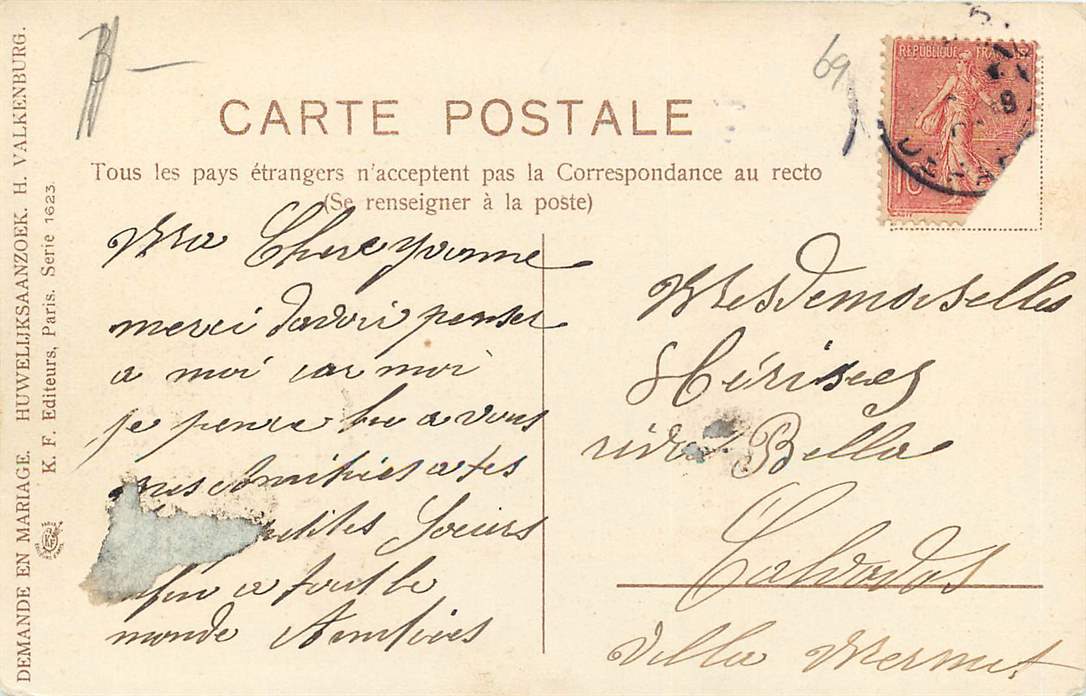 DEMANDE EN MARIAGE. HUWELIJKSAANZOEK. H. VALKENBURG.
K. F. Editeurs, Paris. Serie 1623.
69
RÉPUBLIQUE FRANÇAISE
10
CARTE POSTALE
Tous les pays étrangers n'acceptent pas la Correspondance au recto
(Se renseigner à la poste)
Ma Chere Yvonne
merci davoir penser
a moi car moi
je pense a vous
mes Amitiés a tes
petites Soeurs
a tout le
monde Amitiés
Mesdemoiselles
Hérisses
riva Bella
Calvados
Villa Mermet